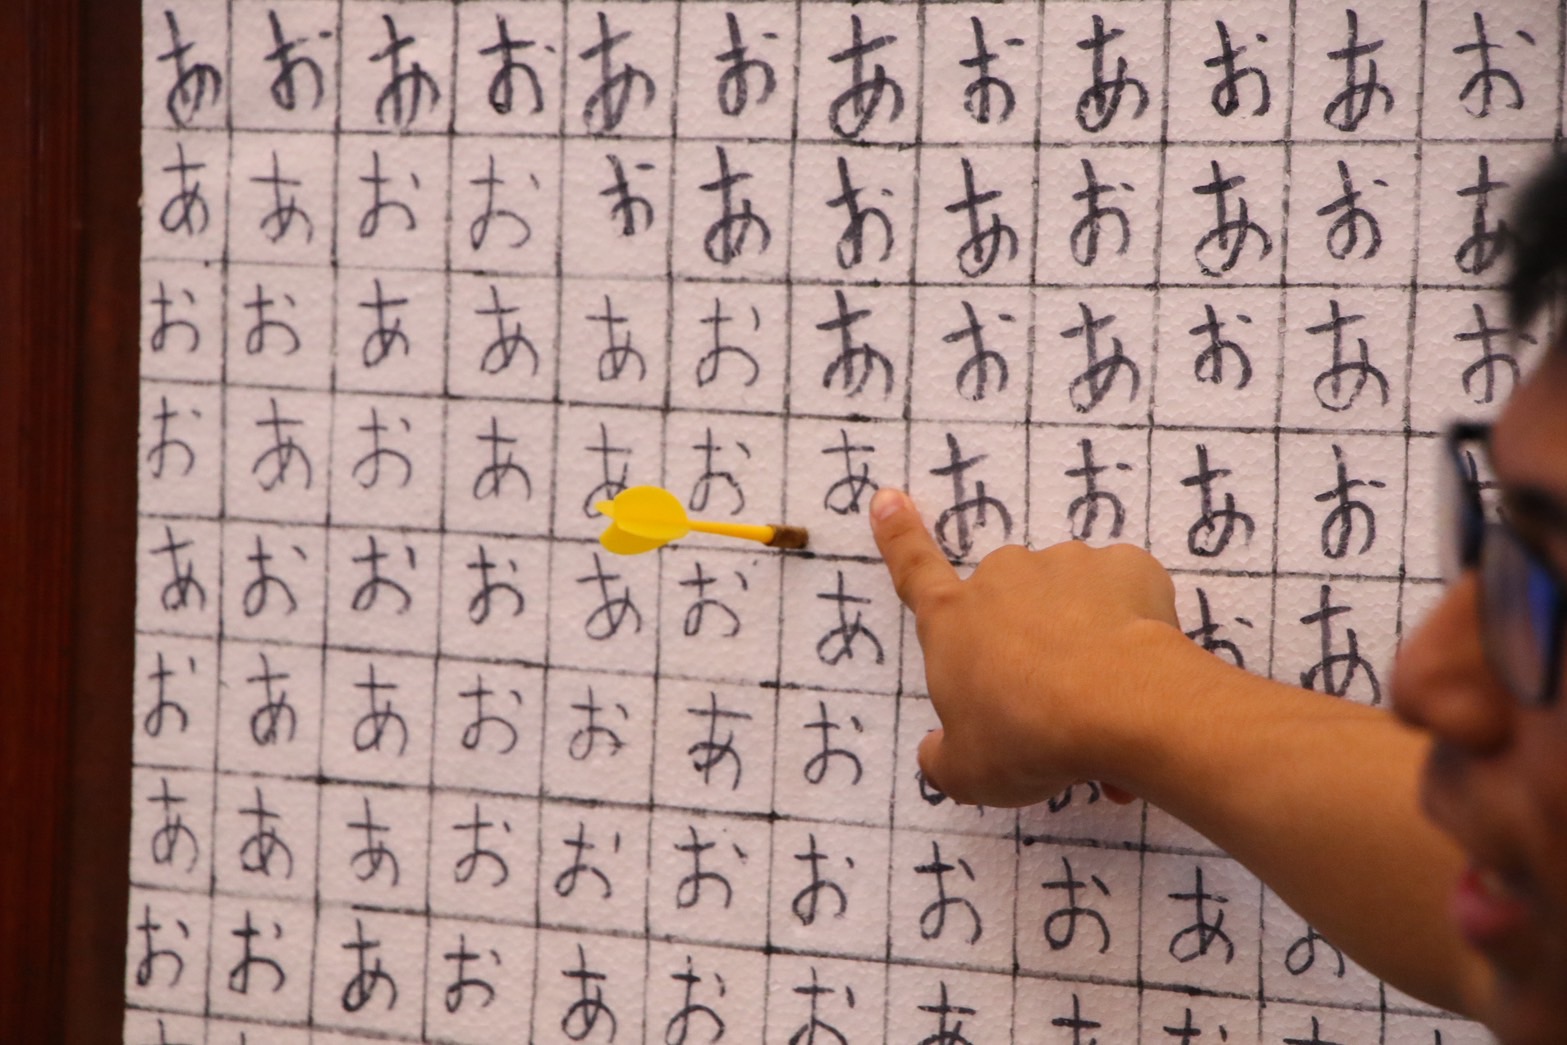 あ お あ お あ お あ お あ お あ お
あ あ お お お あ お あ お あ お あ
お お あ あ あ お あ お あ お あ お
お あ お あ あ お あ あ お あ お
あ お お お あ お あ お あ
お あ あ お お あ お
あ あ あ お お お お お お あ お
お お あ お あ お お